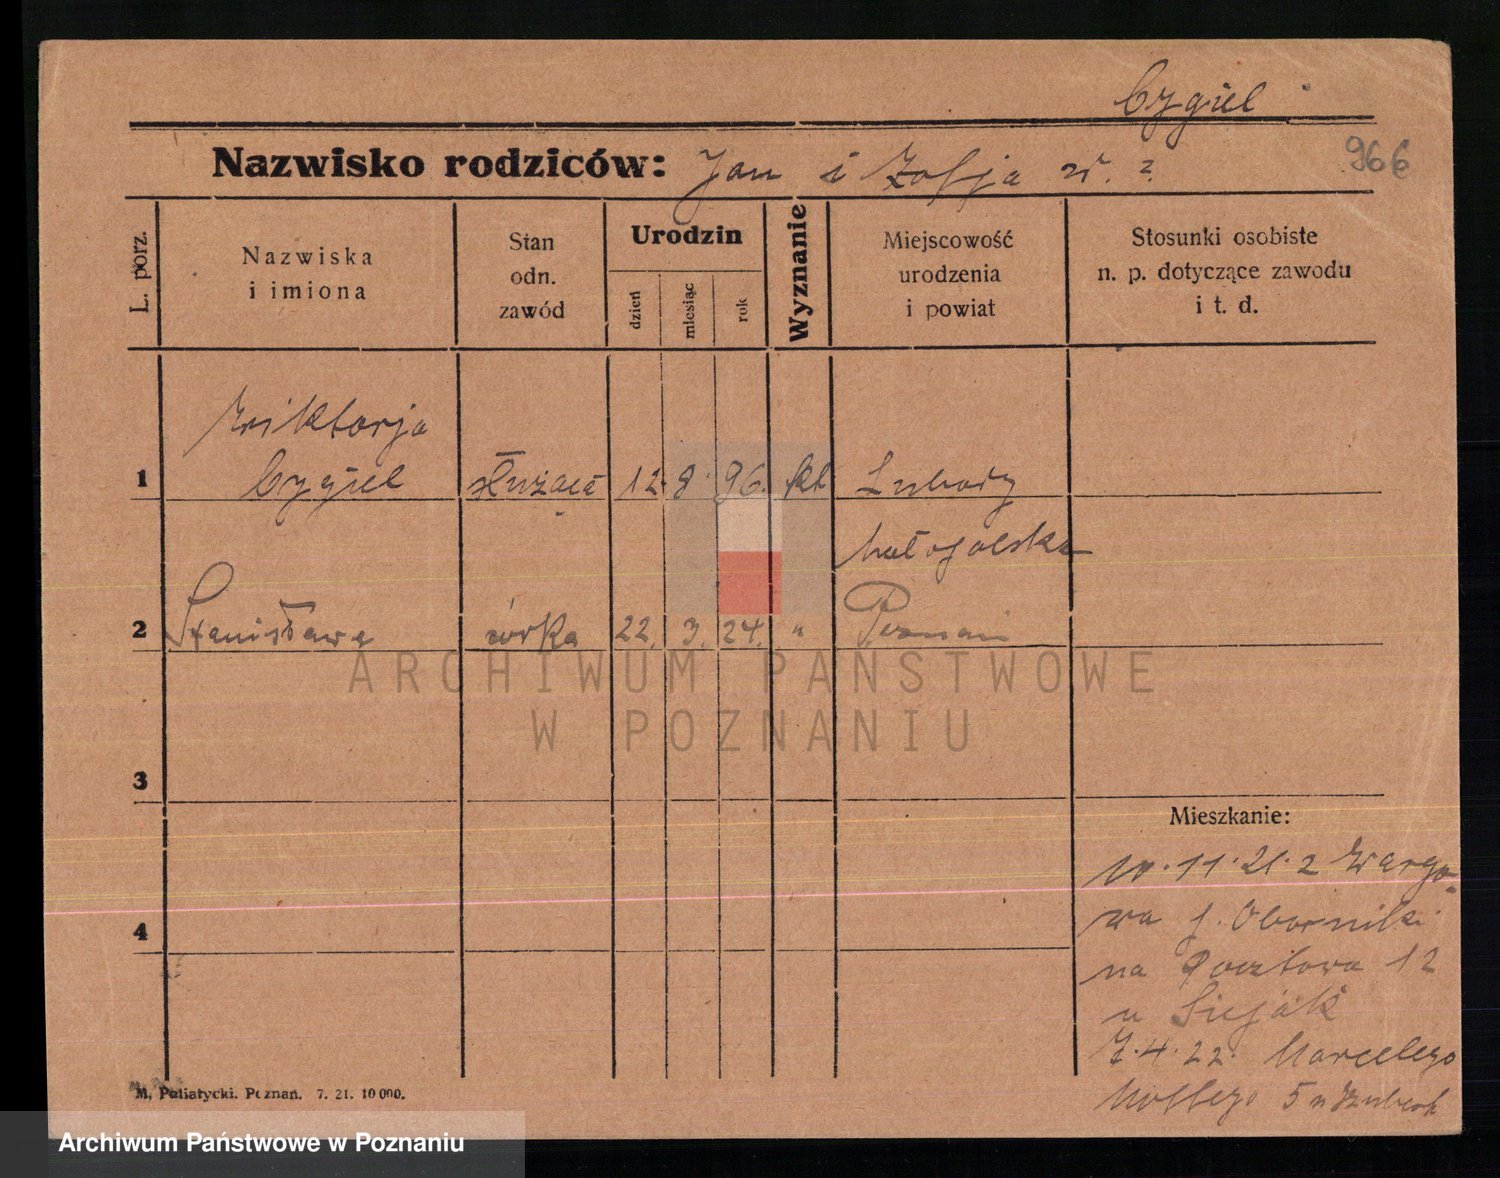 Cygiel
966
Nazwisko rodziców: Jan i Zofja z d. ?
L. porz.
Nazwiska
i imiona
Stan
odn.
zawód
Urodzin
dzień
miesiąc
rok
Wyznanie
Miejscowość
urodzenia
i powiat
Stosunki osobiste
n. p. dotyczące zawodu
i t. d.
Wiktorja
1 Cygiel służąca 12. 8. 96. kt
Małopolska
2 Stanisława córka 22. 3. 24. " Poznań
ARCHIWUM PAŃSTWOWE
W POZNANIU
3
Mieszkanie:
10. 11. 21. z Wargo-
4 wa p. Oborniki
na Pocztowa 12
u
7. 4. 22. Marcelego
Mottego 5 u
M. Putiatycki. Poznań. 7. 21. 10 000.
Archiwum Państwowe w Poznaniu